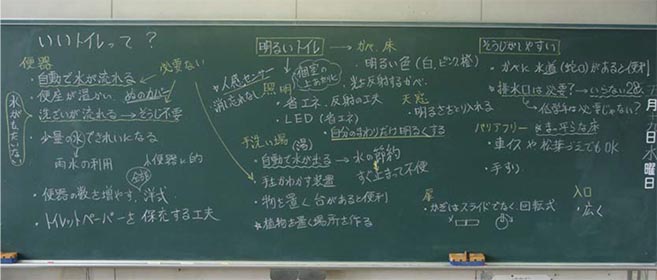 いいトイレって?
便器
必要ない
・自動で水が流れる
・便座が温かい ぬのカバー
・洗ざいが流れる→どうし不要
水がもったいない
・少量の水できれいになる
雨水の利用
人便器に的
・便器の数を増やす、洋式
全部
・トイレットペーパーを保充する工夫
明るいトイレ
→かべ、床
明るい色(白、ピンク、橙)
光を反射するかべ
☆人感センサー
消し忘れなし
照明
個室の上あたりに
・省エネ、反射の工夫
・LED(省エネ)
・自分のまわりだけ明るくする
天窓
明るさをとり入れる
手洗い場
(湯)
・自動で水が出る→水の節約
すぐ止まって不便
・手をかわかす装置
・物を置く台があると便利
☆植物を置く場所を作る
そうじがしやすい
・かべに水道(蛇口)があると便利
・排水口は必要?→いらない28人
→化学室は必要じゃない?
バリアフリー
・平らな床
・車イスや松葉づえでもOK
・手すり
扉
・かぎはスライドでなく、回転式
入口
・広く
月
十九日
水曜日